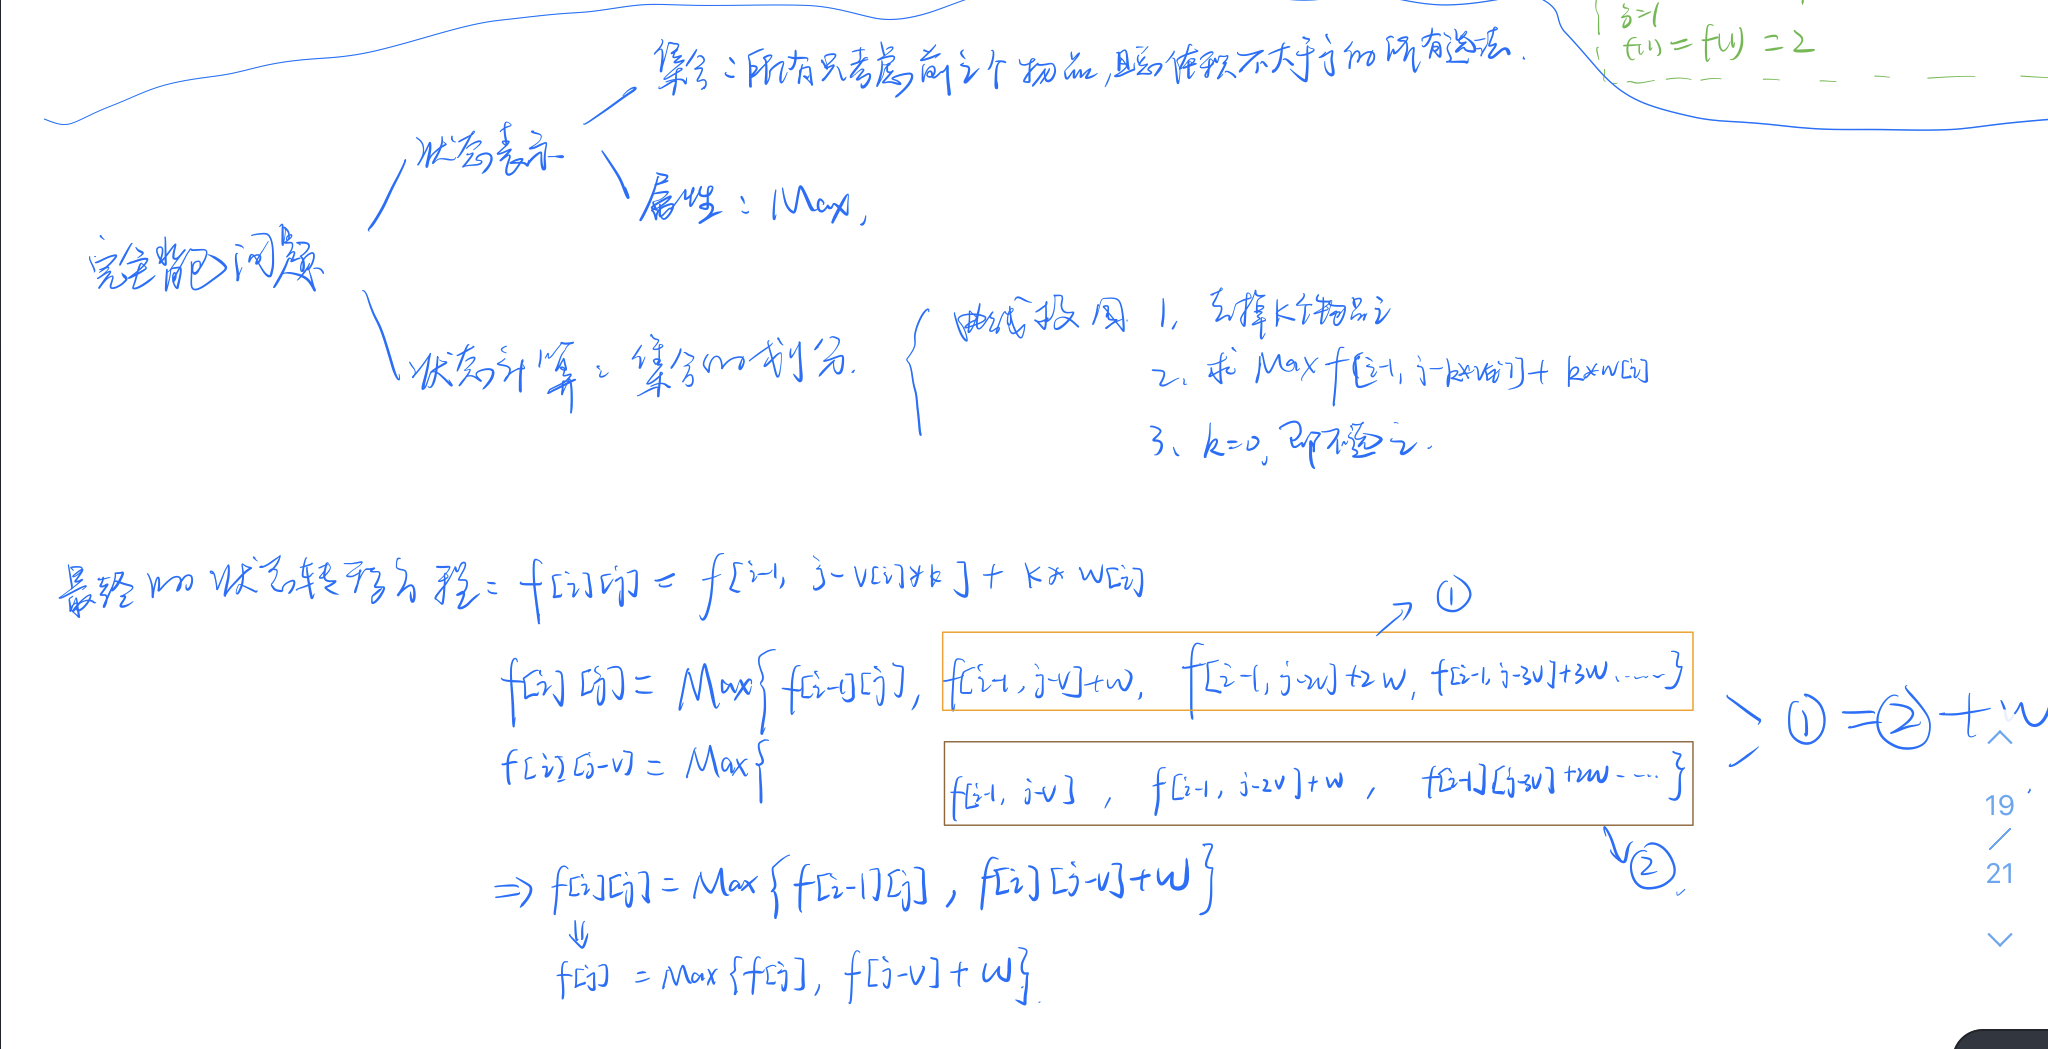 j=1
f(1) = f(1) = 2
集合：所有只考虑前i个物品,且总体积不大于j的所有选法.
状态表示
属性：Max,
完全背包问题
曲线救国 1、去掉k个物品i
状态计算：集合的划分.
2、求 Max f[i-1, j-k*v[i]] + k*w[i]
3、k=0, 即不选i.
最终的状态转移方程：f[i][j] = f[i-1, j-v[i]*k] + k* w[i]
①
f[i][j] = Max{ f[i-1][j], f[i-1, j-v]+w, f[i-1, j-2v]+2w, f[i-1, j-3v]+3w ......}
① = ② + w
f[i][j-v] = Max{ f[i-1, j-v] , f[i-1, j-2v]+w , f[i-1][j-3v]+2w ......}
②
=> f[i][j] = Max{ f[i-1][j] , f[i][j-v]+w }
f[j] = Max{f[j], f[j-v]+w}.
19
/
21